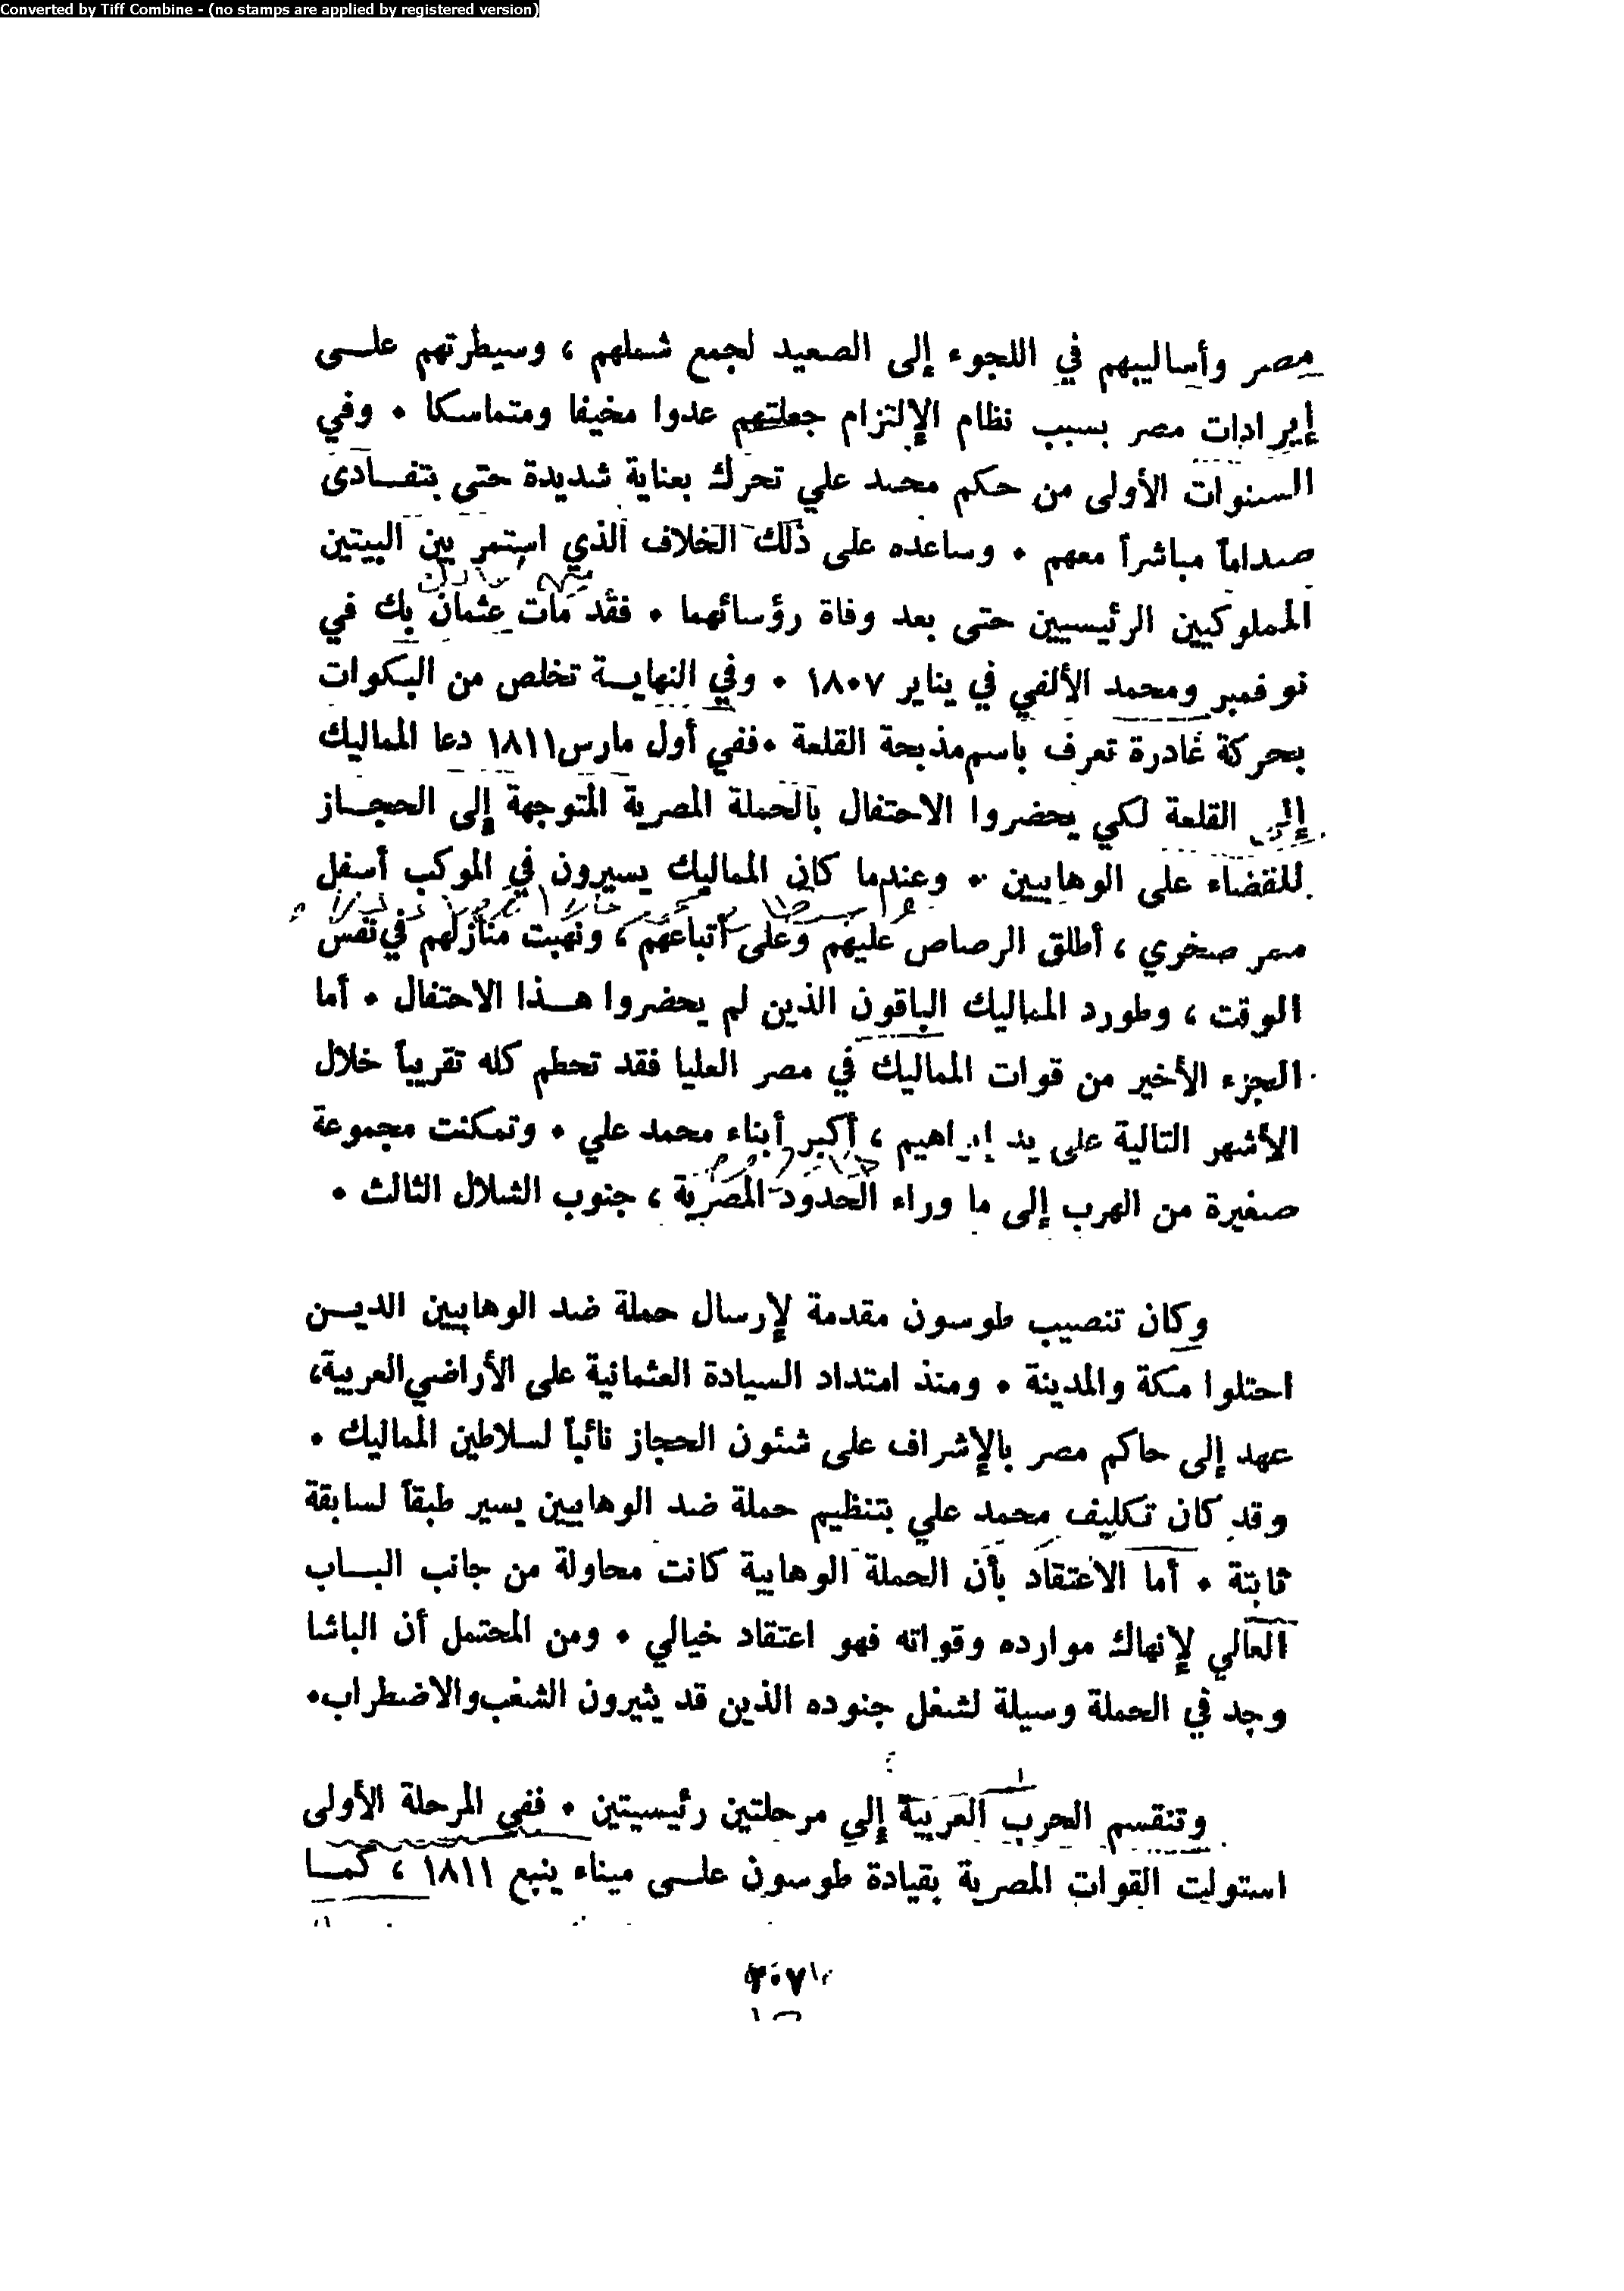 Converted by Tiff Combine - (no stamps are applied by registered version)
مصر وأساليبهم في اللجوء إلى الصعيد لجمع شملهم ، وسيطرتهم على
إيرادات مصر بسبب نظام الإلتزام جعلتهم عدوا مخيفا ومتماسكا . وفي
السنوات الأولى من حكم محمد علي تحرك بعناية شديدة حتى يتفادى
صداماً مباشراً معهم . وساعده على ذلك الخلاف الذي استمر بين البيتين
المملوكيين الرئيسيين حتى بعد وفاة رؤسائهما . فقد مات عثمان بك في
نوفمبر ومحمد الألفي في يناير ١٨٠٧ . وفي النهاية تخلص من البكوات
بحركة غادرة تعرف باسم مذبحة القلعة . ففي أول مارس ١٨١١ دعا المماليك
إلى القلعة لكي يحضروا الاحتفال بالحملة المصرية المتوجهة إلى الحجاز
للقضاء على الوهابيين . وعندما كان المماليك يسيرون في الموكب أسفل
ممر صخري ، أطلق الرصاص عليهم وعلى أتباعهم ، ونهبت منازلهم في نفس
الوقت ، وطورد المماليك الباقون الذين لم يحضروا هذا الاحتفال . أما
الجزء الأخير من قوات المماليك في مصر العليا فقد تحطم كله تقريباً خلال
الأشهر التالية على يد إبراهيم ، أكبر أبناء محمد علي . وتمكنت مجموعة
صغيرة من الهرب إلى ما وراء الحدود المصرية ، جنوب الشلال الثالث .
وكان تنصيب طوسون مقدمة لإرسال حملة ضد الوهابيين الذين
احتلوا مكة والمدينة . ومنذ امتداد السيادة العثمانية على الأراضي العربية،
عهد إلى حاكم مصر بالإشراف على شئون الحجاز نائباً لسلاطين المماليك .
وقد كان تكليف محمد علي بتنظيم حملة ضد الوهابيين يسير طبقاً لسابقة
ثابتة . أما الاعتقاد بأن الحملة الوهابية كانت محاولة من جانب الباب
العالي لإنهاك موارده وقواته فهو اعتقاد خيالي . ومن المحتمل أن الباشا
وجد في الحملة وسيلة لشغل جنوده الذين قد يثيرون الشغب والاضطراب.
وتنقسم الحرب العربية إلى مرحلتين رئيسيتين . ففي المرحلة الأولى
استولت القوات المصرية بقيادة طوسون على ميناء ينبع ١٨١١ ، كما
٣٠٧